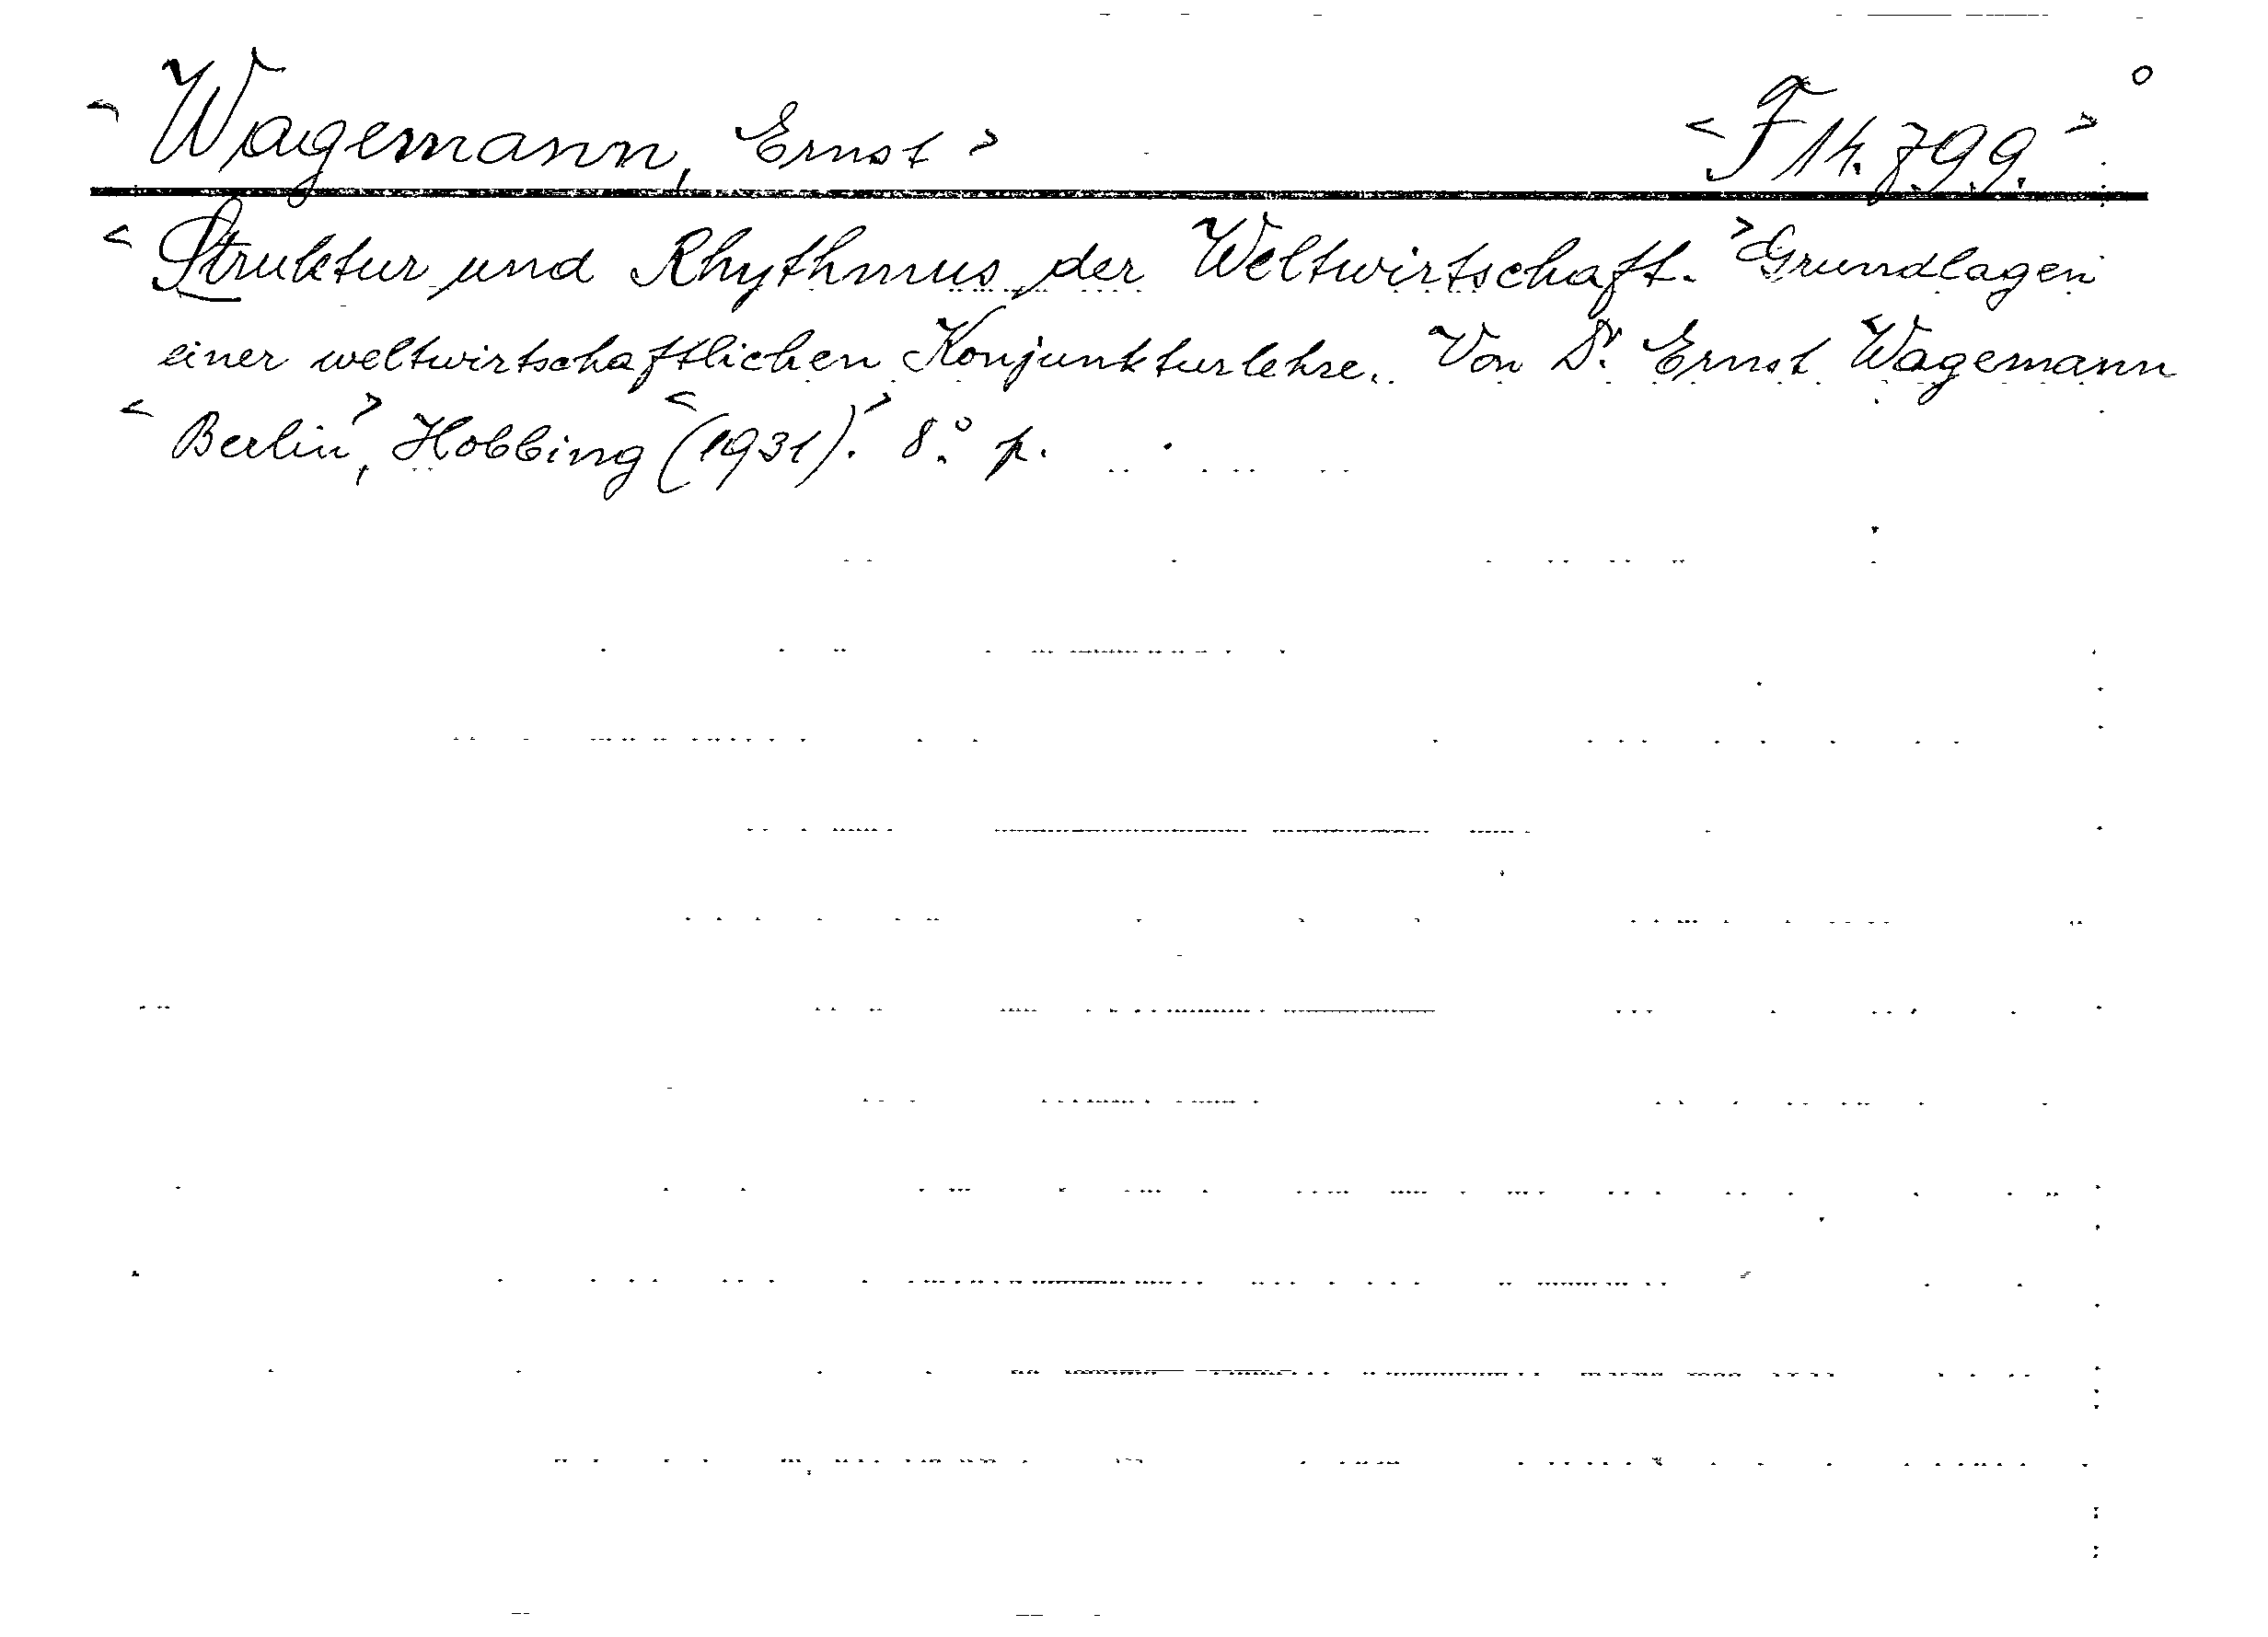 < Wagemann, Ernst > < F 14.799. >
< Struktur und Rhythmus der Weltwirtschaft. > Grundlagen
einer weltwirtschaftlichen Konjunkturlehre. Von Dr. Ernst Wagemann
< Berlin >, Hobbing < (1931). > 8.° p.